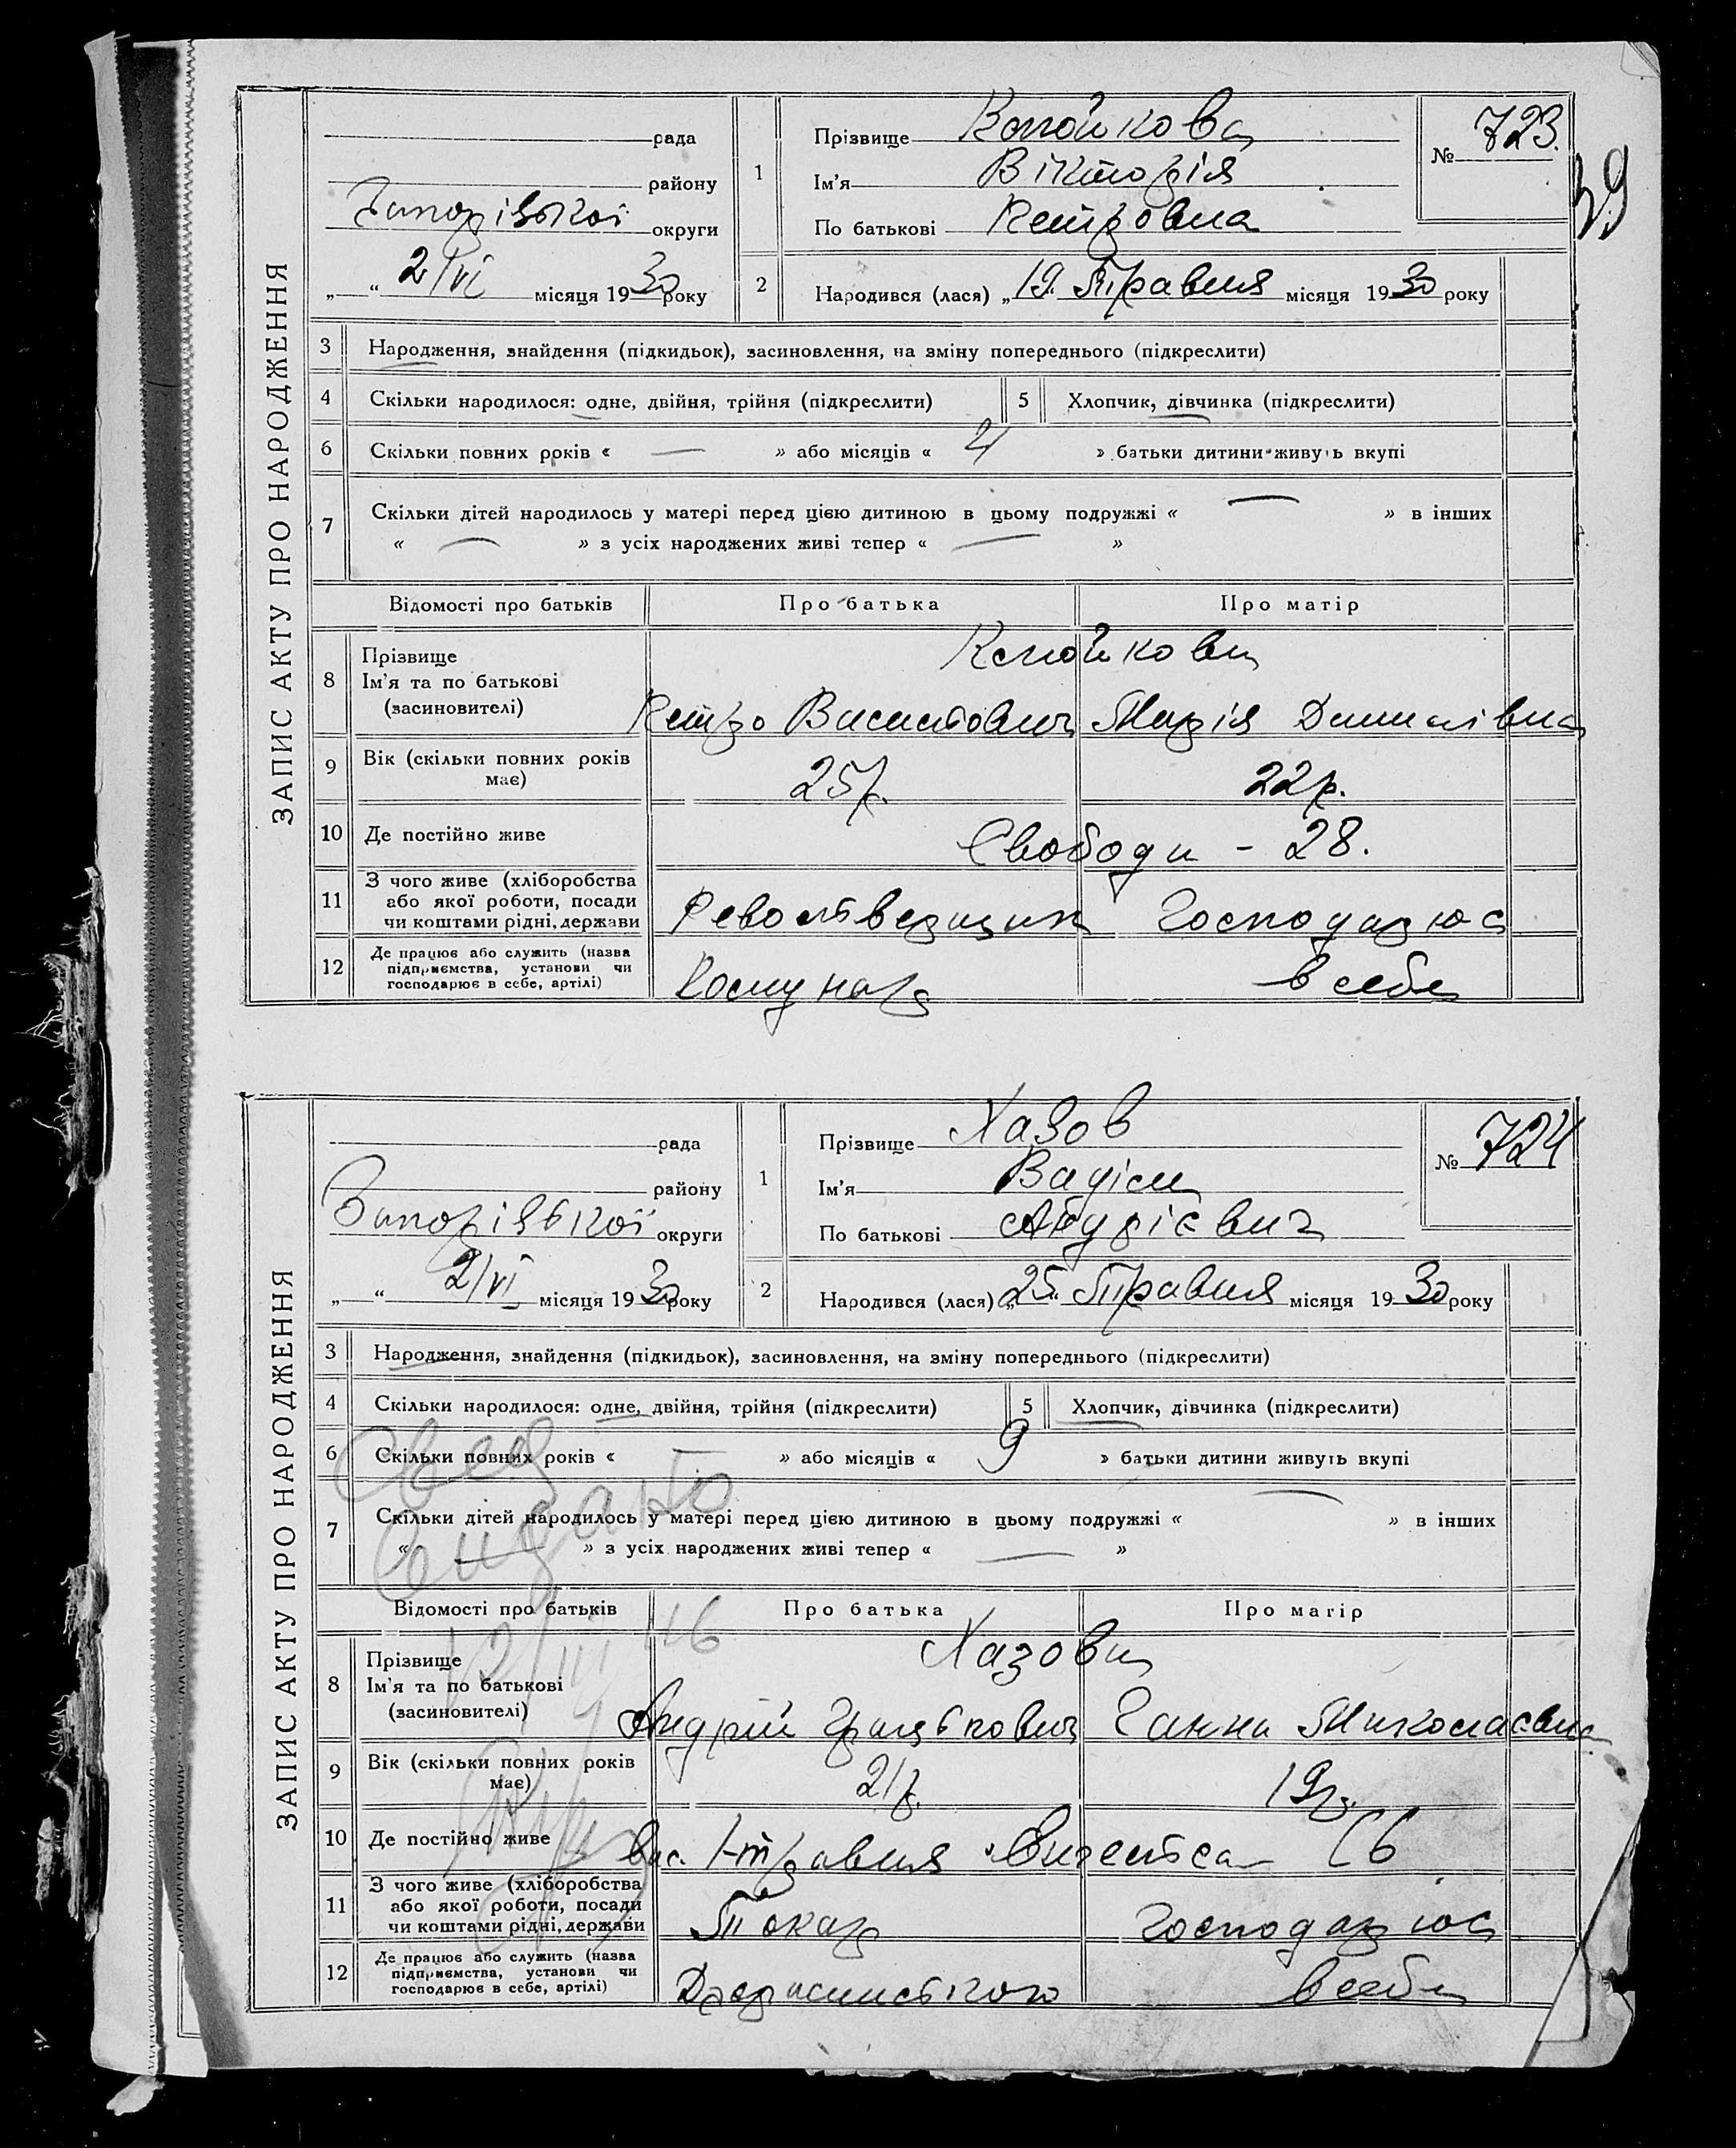 ЗАПИС АКТУ ПРО НАРОДЖЕННЯ
рада
району
Запорізької округи
„ “ 2/VI місяця 1930 року
1
Прізвище
Ім'я Вікторія
По батькові Петровна
№ 723.
39
2 Народився (лася) „19. Травня місяця 1930 року
3 Народження, знайдення (підкидьок), засиновлення, на зміну попереднього (підкреслити)
4 Скільки народилося: одне, двійня, трійня (підкреслити)
5 Хлопчик, дівчинка (підкреслити)
6 Скільки повних років « — » або місяців « » батьки дитини живуть вкупі
7 Скільки дітей народилось у матері перед цією дитиною в цьому подружжі « — » в інших
« — » з усіх народжених живі тепер « — »
Відомості про батьків
Про батька
Про матір
8 Прізвище
Ім'я та по батькові
(засиновителі)
Петро Васильович Марія Данилівна
9 Вік (скільки повних років має)
25р.
22р.
10 Де постійно живе
Свободи - 28.
11 З чого живе (хліборобства
або якої роботи, посади
чи коштами рідні, держави
Господарює
12 Де працює або служить (назва
підприємства, установи чи
господарює в себе, артілі)
Комунар
в себе
ЗАПИС АКТУ ПРО НАРОДЖЕННЯ
рада
району
Запорізької округи
„ “ 2/VI місяця 1930 року
1
Прізвище Хазов
Ім'я Вадім
По батькові Андрієвич
№ 724
2 Народився (лася) „25. Травня місяця 1930 року
3 Народження, знайдення (підкидьок), засиновлення, на зміну попереднього (підкреслити)
4 Скільки народилося: одне, двійня, трійня (підкреслити)
5 Хлопчик, дівчинка (підкреслити)
6 Скільки повних років « » або місяців « 9 » батьки дитини живуть вкупі
7 Скільки дітей народилось у матері перед цією дитиною в цьому подружжі « — » в інших
« — » з усіх народжених живі тепер « — »
Відомості про батьків
Про батька
Про матір
8 Прізвище
Ім'я та по батькові
(засиновителі)
Хазови
Андрій Ганна Миколаєвна
9 Вік (скільки повних років має)
21р.
19р.
10 Де постійно живе
вис. 1-травня
11 З чого живе (хліборобства
або якої роботи, посади
чи коштами рідні, держави
Токар
Господарює
12 Де працює або служить (назва
підприємства, установи чи
господарює в себе, артілі)
в себе